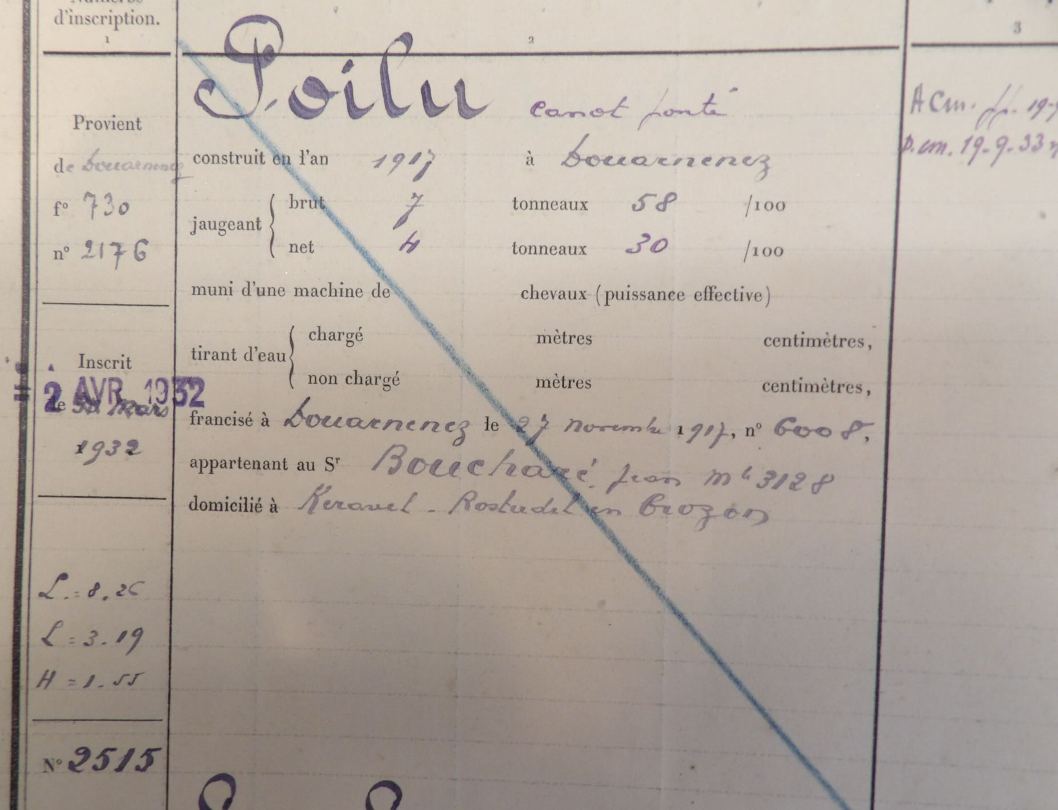 d'inscription.
1
2
3
Provient
de Douarnenez
fº 730
nº 2176
Inscrit
2 AVR 1932
le Mars
1932
L = 8,26
L = 3.19
H = 1.55
Nº 2515
Poilu canot ponté
construit en l'an 1917 à Douarnenez
jaugeant { brut 7 tonneaux 58 /100
net 4 tonneaux 30 /100
muni d'une machine de chevaux (puissance effective)
tirant d'eau { chargé mètres centimètres,
non chargé mètres centimètres,
francisé à Douarnenez le 27 novembre 1917, nº 6008,
appartenant au Sr Boucharé Jean 3128
domicilié à Keravel - Rostudel en Crozon
ACm. 19-
D.cm. 19-9-33